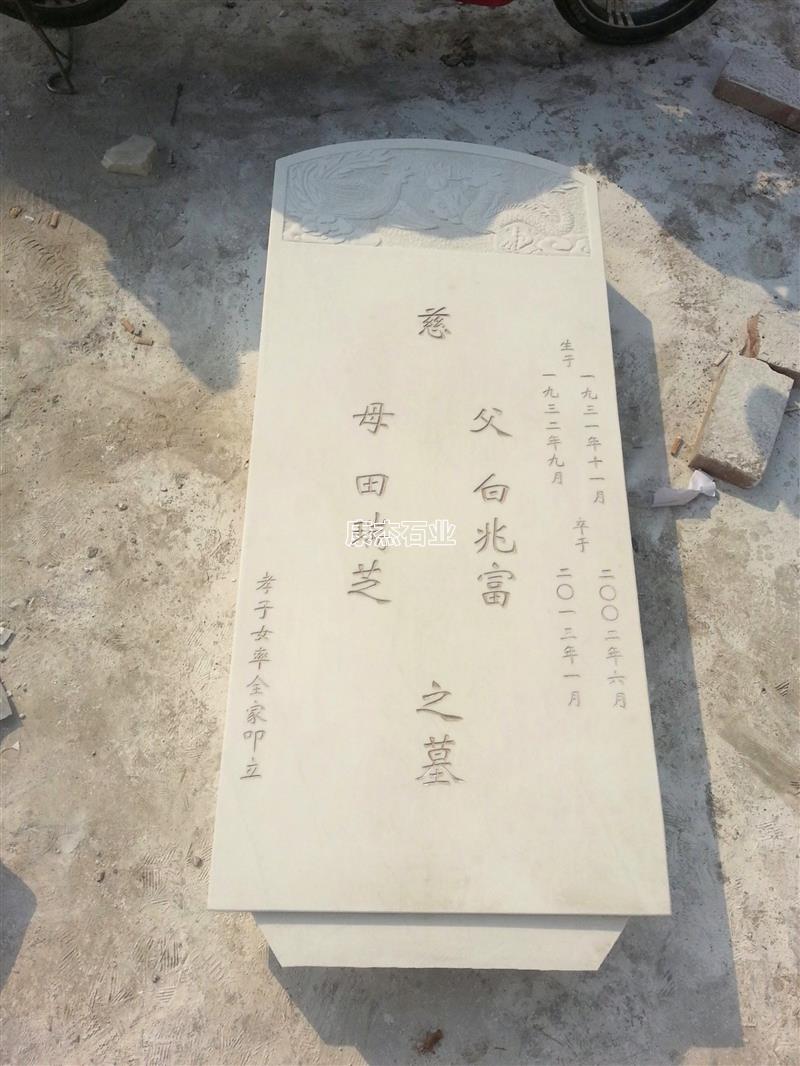 生于
一九三一年十一月
一九三二年九月
卒于
二〇〇二年六月
二〇一三年一月
慈
父白兆富
母田 芝
之墓
孝子女率全家叩立
康杰石业